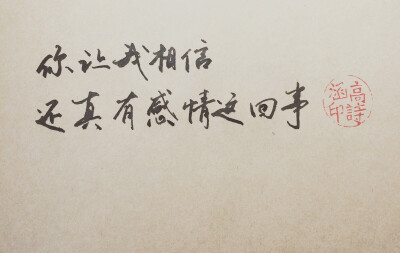 你让我相信
还真有感情这回事
高诗涵印